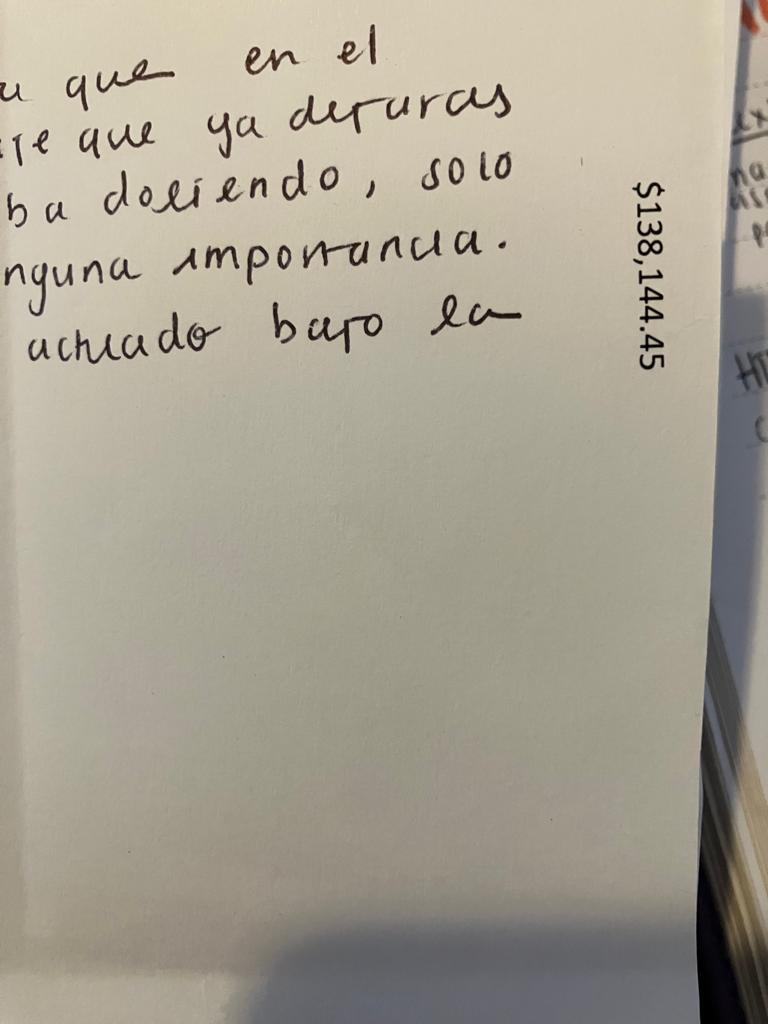 que en el
que ya dejaras
ba doliendo, solo
nguna importancia.
bajo la
$138,144.45